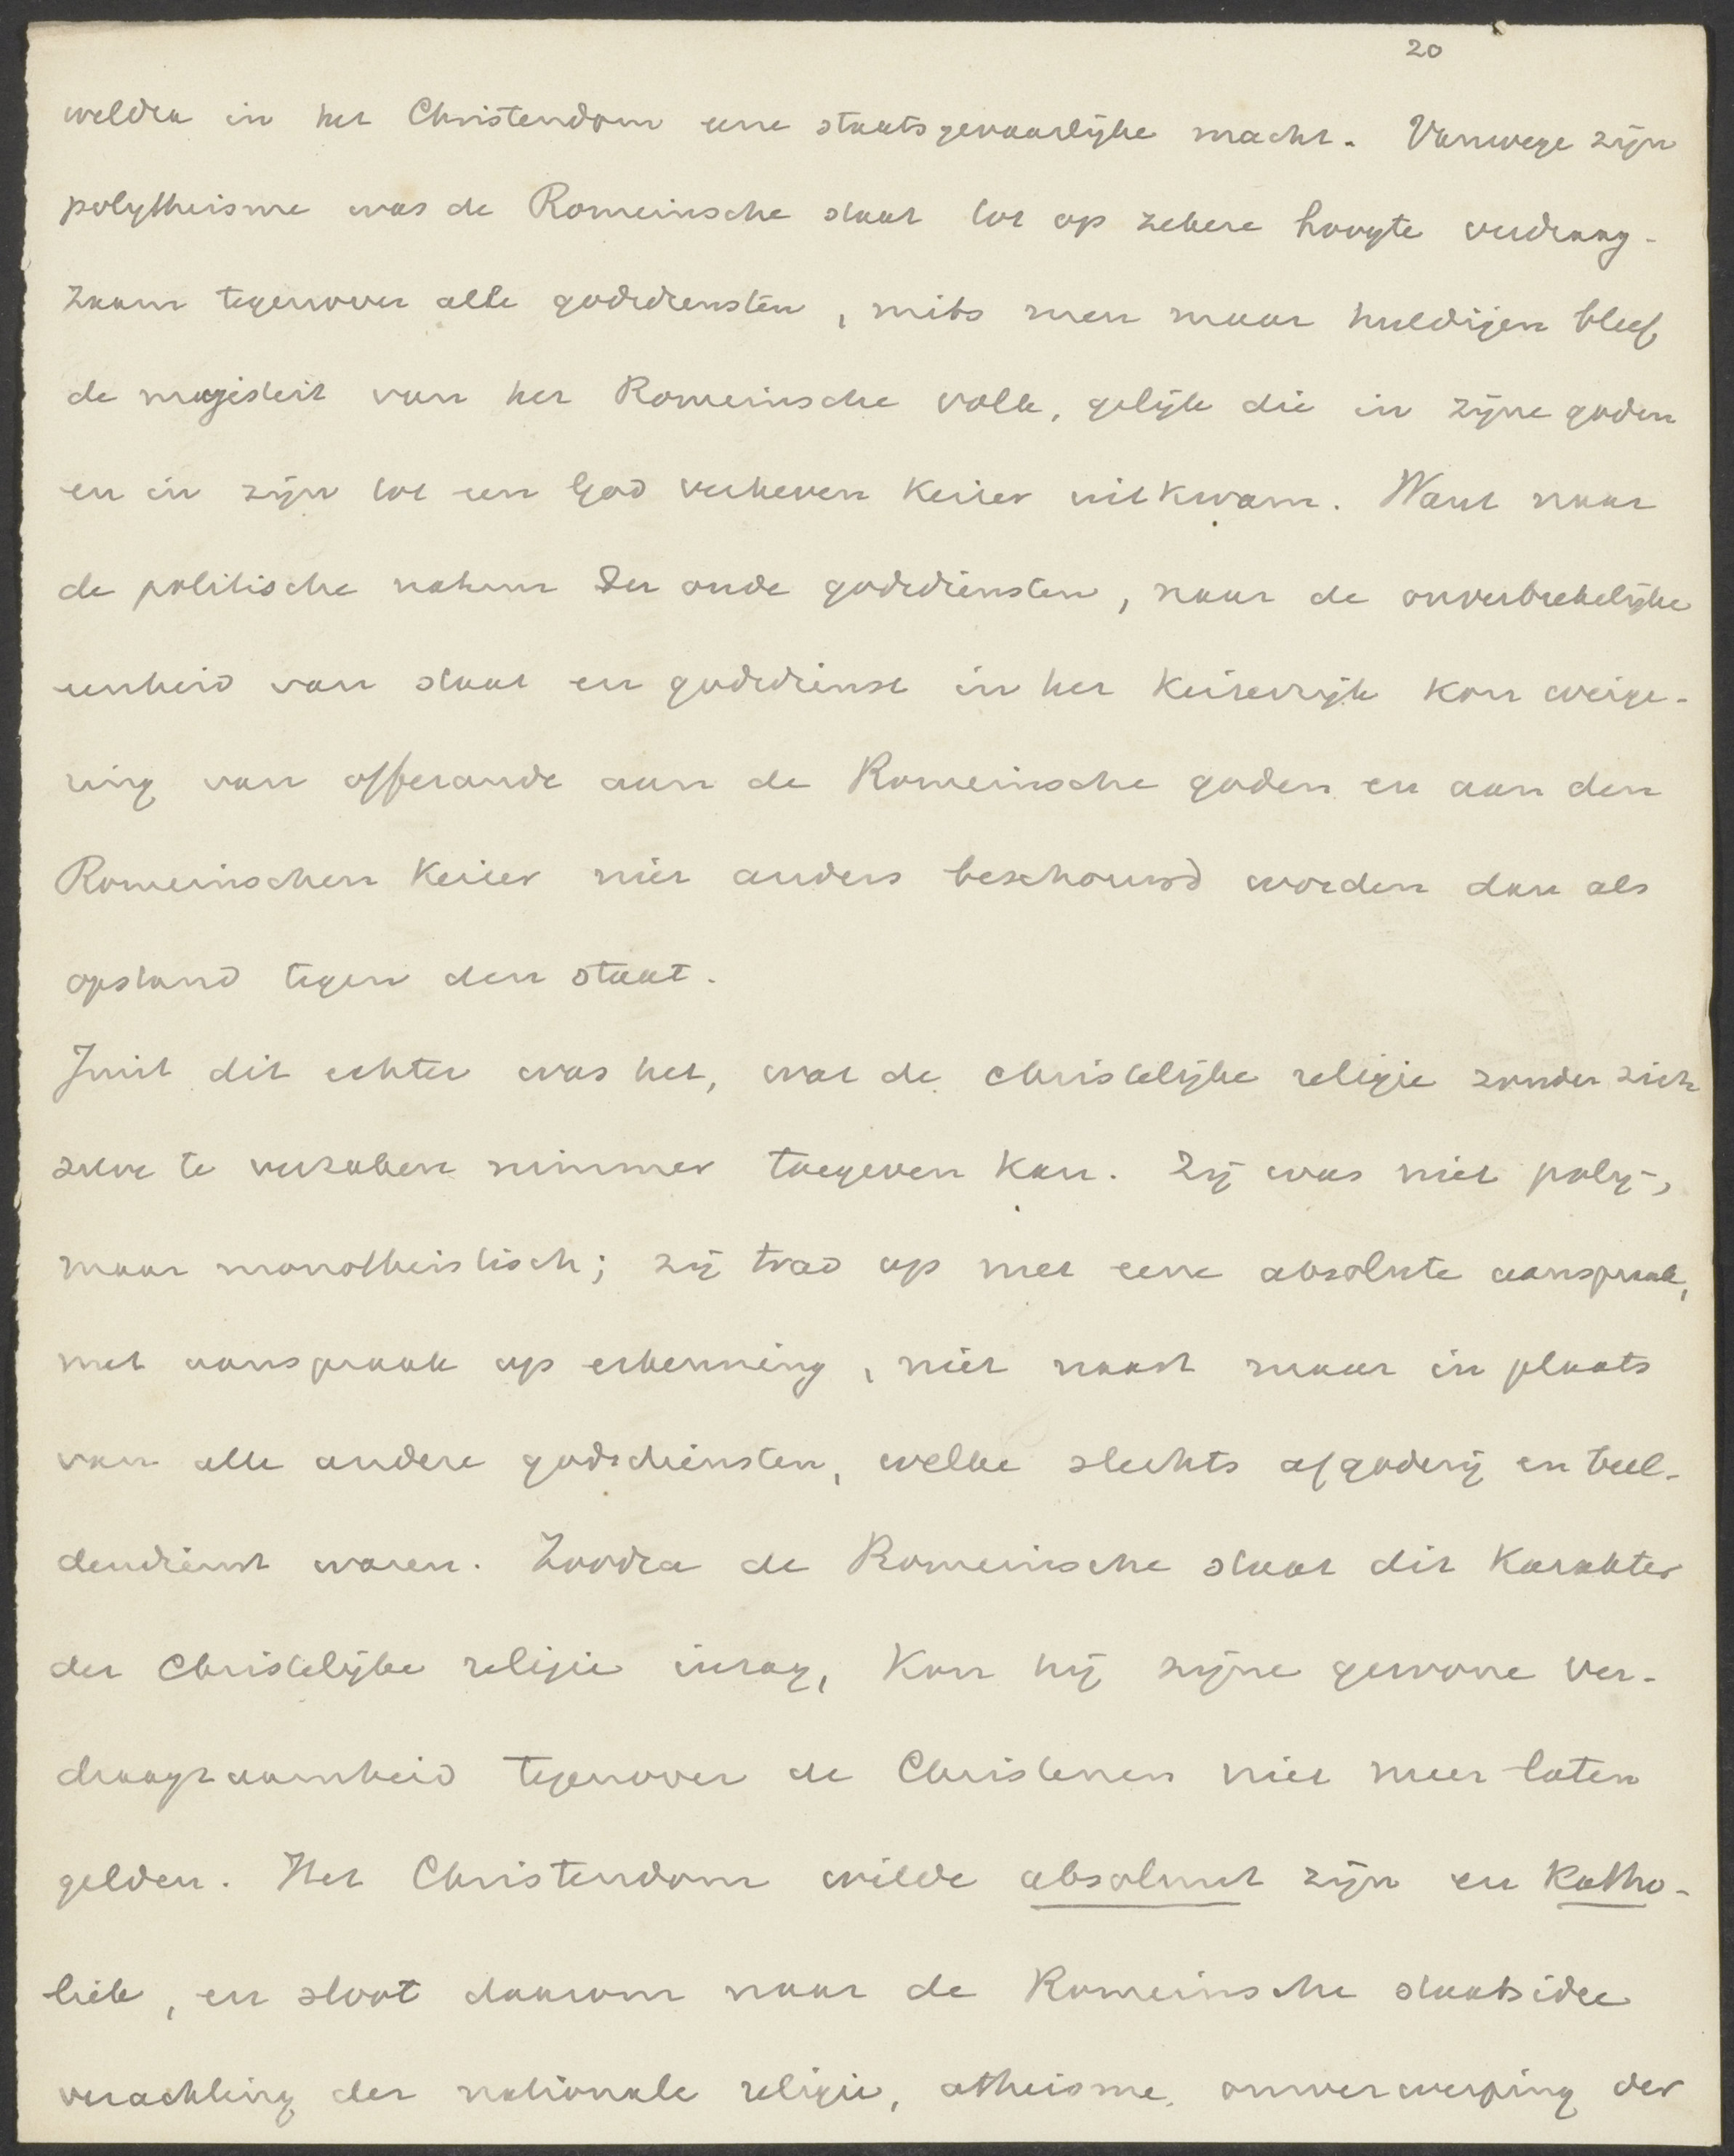 20
weldra in het Christendom eene staatsgevaarlijke macht. Vanwege zijn
polytheisme was de Romeinsche staat tot op zekere hoogte verdraag-
zaam tegenover alle godsdiensten, mits men maar huldigen bleef
de majesteit van het Romeinsche volk, gelijk die in zijne goden
en in zijn tot een God verheven Keizer uitkwam. Want naar
de politische natuur der oude godsdiensten, naar de onverbrekelijke
eenheid van staat en godsdienst in het Keizerrijk kon weige-
ring van offerande aan de Romeinsche goden en aan den
Romeinschen Keizer niet anders beschouwd worden dan als
opstand tegen den staat.
Juist dit echter was het, wat de christelijke religie zonder zich
zelve te verzaken nimmer toegeven kon. Zij was niet poly-,
maar monotheistisch; zij trad op met eene absolute aanspraak,
met aanspraak op erkenning, niet naast maar in plaats
van alle andere godsdiensten, welke slechts afgoderij en beel-
dendienst waren. Zoodra de Romeinsche staat dit Karakter
der Christelijke religie inzag, Kon hij zijne gewone ver-
draagzaamheid tegenover de Christenen niet meer laten
gelden. Het Christendom wilde absoluut zijn en Katho-
liek, en sloot daarom naar de Romeinsche staatsidee
verachting der nationale religie, atheisme, omverwerping der